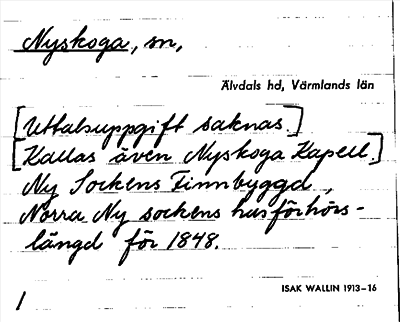 Nyskoga, sn,
Älvdals hd, Värmlands län
[Uttalsuppgift saknas.]
[Kallas även Nyskoga Kapell.]
Ny Sockens Finnbyggd,
Norra Ny sockens husförhörs-
längd för 1848.
ISAK WALLIN 1913–16
1